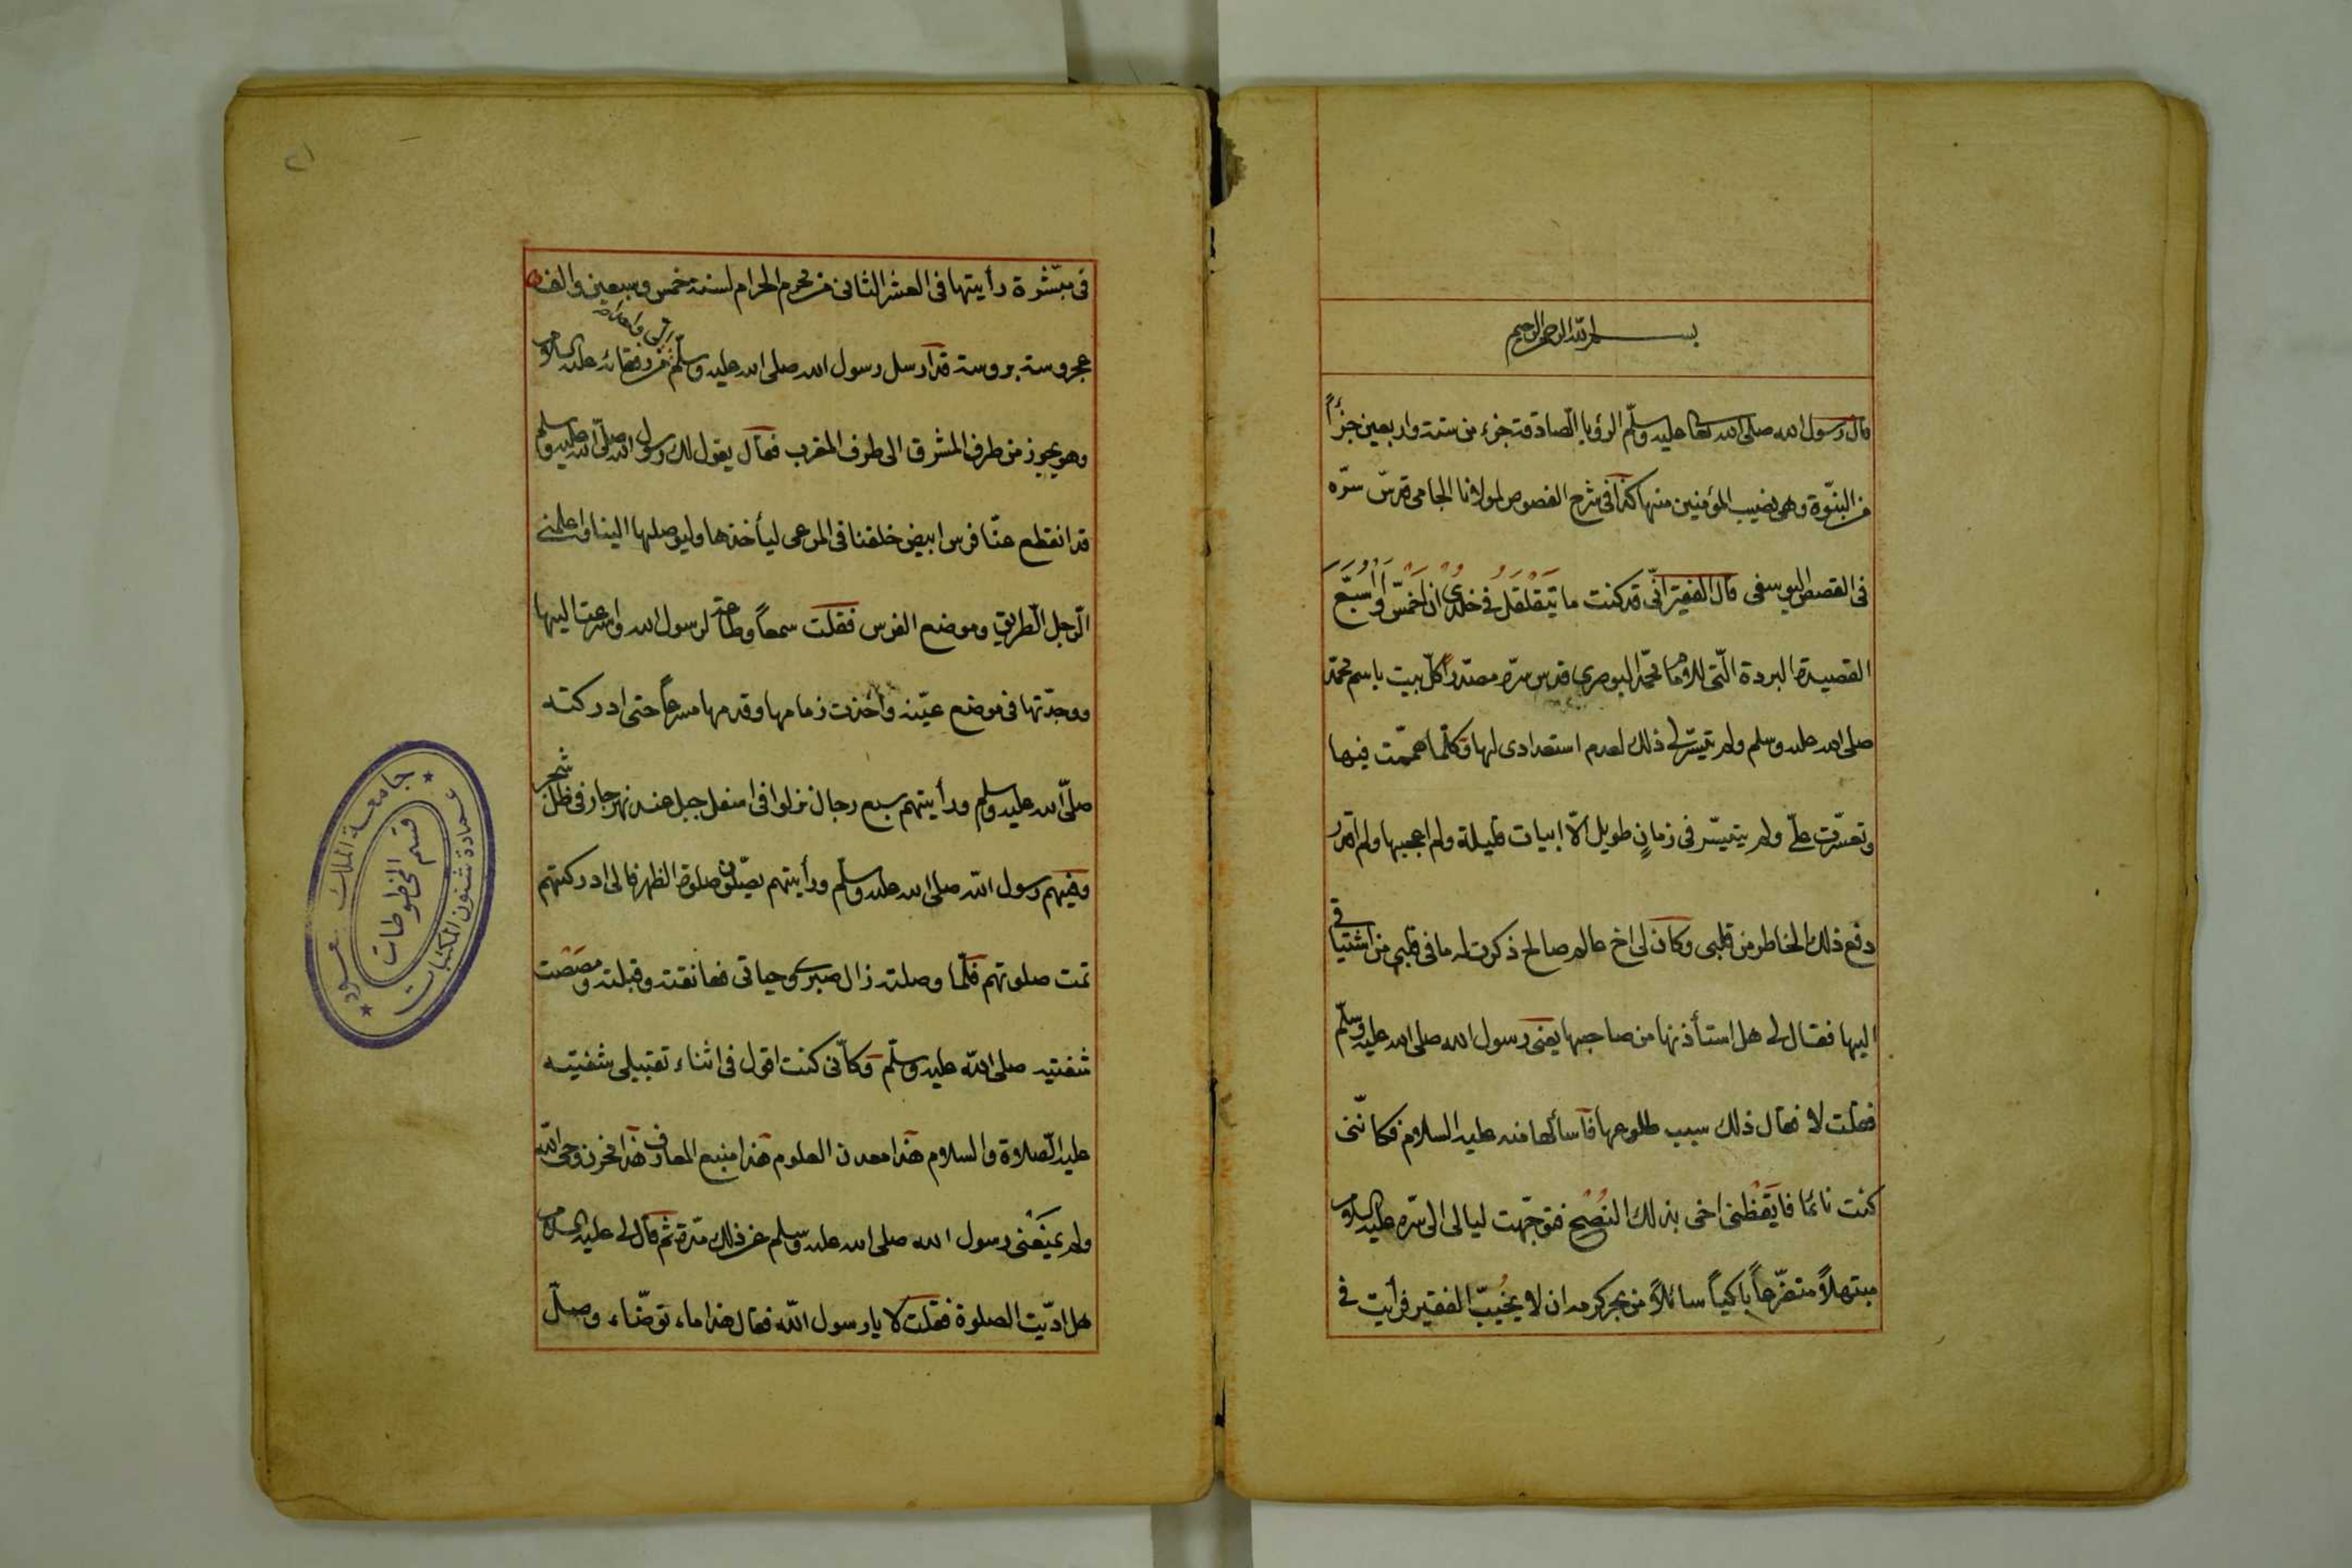 بسم الله الرحمن الرحيم
قال رسول الله صلى الله تعالى عليه وسلّم الرؤيا الصادقة جزء من ستة واربعين جزءً
من النبوّة وهى نصيب المؤمنين منها كذا فى شرح الفصوص لمولانا الجامى قدس سرّه
فى القصص اليوسفى قال الفقير انّى قد كنت ما يتقلقل فى خلدى ان اخمّس او اسبّع
القصيدة البردة الّتى للامام محمّد البوصرى قدس سره مصدّراً كلّ بيت باسم محمّد
صلى الله عليه وسلم ولم يتيسّر لى ذلك لعدم استعدادى لها وكلّما هممت فيها
وتعسّرت علىّ ولم يتيسّر فى زمانٍ طويل الّا ابيات قليلة ولم اعجبها ولم اقدر
دفع ذلك الخاطر من قلبى وكان لى اخ عالم صالح ذكرت له ما فى قلبى من اشتياقى
اليها فقال لى هل استأذنها من صاحبها يعنى رسول الله صلى الله عليه وسلّم
فقلت لا فقال ذلك سبب طلوعها فاسألها منه عليه السلام فكانّنى
كنت نائما فايقظنى اخى بذلك النصح فتوجّهت ليالى الى سرّه عليه السلام
مبتهلاً متضرّعاً باكياً سائلاً من بحر كرمه ان لا يخيّب الفقير فرأيت فى
٢١
فى مبّشرة رأيتها فى العشر الثانى من محرم الحرام لسنة خمس وسبعين والف
بمحروسة بروسة قد ارسل رسول الله صلى الله عليه وسلّم من رفقائه عليه السلام
وهو يجوز من طرف المشرق الى طرف المغرب فقال يقول لك رسول الله صلّى الله عليه وسلم
قد انقطع عنّا فرس ابيض خلفنا فى المرعى ليأخذها وليوصلها الينا واعلمنى
الرجل الطريق وموضع الفرس فقلت سمعاً وطاعة لرسول الله واسرعت اليها
ووجدتها فى موضع عيّنه وأخذت زمامها وقدمها مسرعاً حتى ادركته
صلّى الله عليه وسلم ورأيتهم سبع رجال نزلوا فى اسفل جبل عند نهر جار فى ظلّ شجر
وفيهم رسول الله صلى الله عليه وسلّم ورأيتهم يصلّون صلوة الظهر فالى ادركتهم
تمت صلوتهم فلمّا وصلته زال صبرى وحياتى فعانقته وقبلته ومصصت
شفتيه صلى الله عليه وسلّم وكانّى كنت اقول فى اثناء تقبيلى شفتيه
عليه الصلاة والسلام هذا معدن العلوم هذا منبع المعارف هذا مخزن وحى الله
ولم يمنعنى رسول الله صلى الله عليه وسلم عن ذلك مدة ثم قال لى عليه السلام
هل ادّيت الصلوة فقلت لا يا رسول الله فقال هذا ماء توضّاء وصلّ
جامعة الملك سعود
عمادة شئون المكتبات
قسم المخطوطات